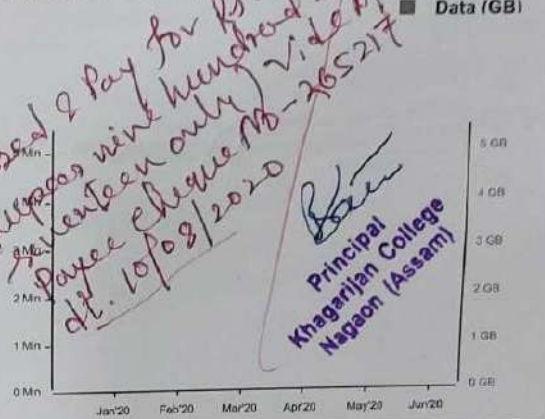 Data (GB)
& Pay for Rs
nine hundred
seventeen only) vide A/
Payee cheque No - 265217
dt. 10/08/2020
Principal
Khagarijan College
Nagaon (Assam)
5 GB
4 GB
3 GB
2 GB
1 GB
0 GB
3 Mn
2 Mn
1 Mn
0 Mn
Jan'20 Feb'20 Mar'20 Apr'20 May'20 Jun'20